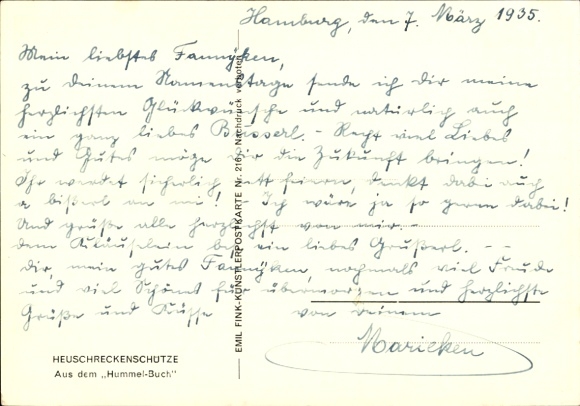 Hamburg, den 7. März 1935.
Mein liebstes Fannyken,
zu deinem Namenstage sende ich dir meine
herzlichsten Glückwünsche und natürlich auch
ein ganz liebes Busserl. - Recht viel Liebes
und Gutes möge dir die Zukunft bringen!
Ihr werdet sicherlich nett feiern, denkt dabei auch
a bisserl an mi! Ich wäre ja so gern dabei!
Und grüße alle herzlichst von mir. -
dem ein liebes Grußerl. - -
Dir, mein gutes Fannyken, nochmals viel Freude
und viel Schönes für übermorgen und herzlichste
Grüße und Küsse von deinem
Marieken
EMIL FINK-KÜNSTLERPOSTKARTE Nr. 216, Nachdruck verboten
HEUSCHRECKENSCHÜTZE
Aus dem „Hummel-Buch"